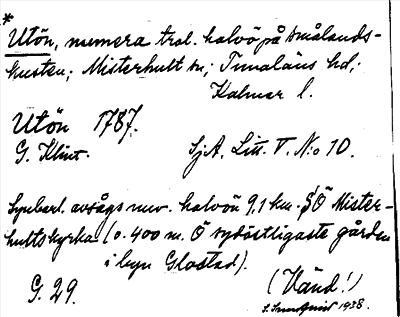 *
Utön, numera trol. halvö på Smålands-
kusten; Misterhult sn; Tunaläns hd;
Kalmar l.
Utön 1787.
G. Klint. SjA, Litt. V. N:o 10.
Synbarl. avsågs nuv. halvön 9,1 km. SÖ Mister-
hults kyrka (o. 400 m. Ö sydöstligaste gården
i byn Glostad).
G. 29. (Vänd!)
1938.